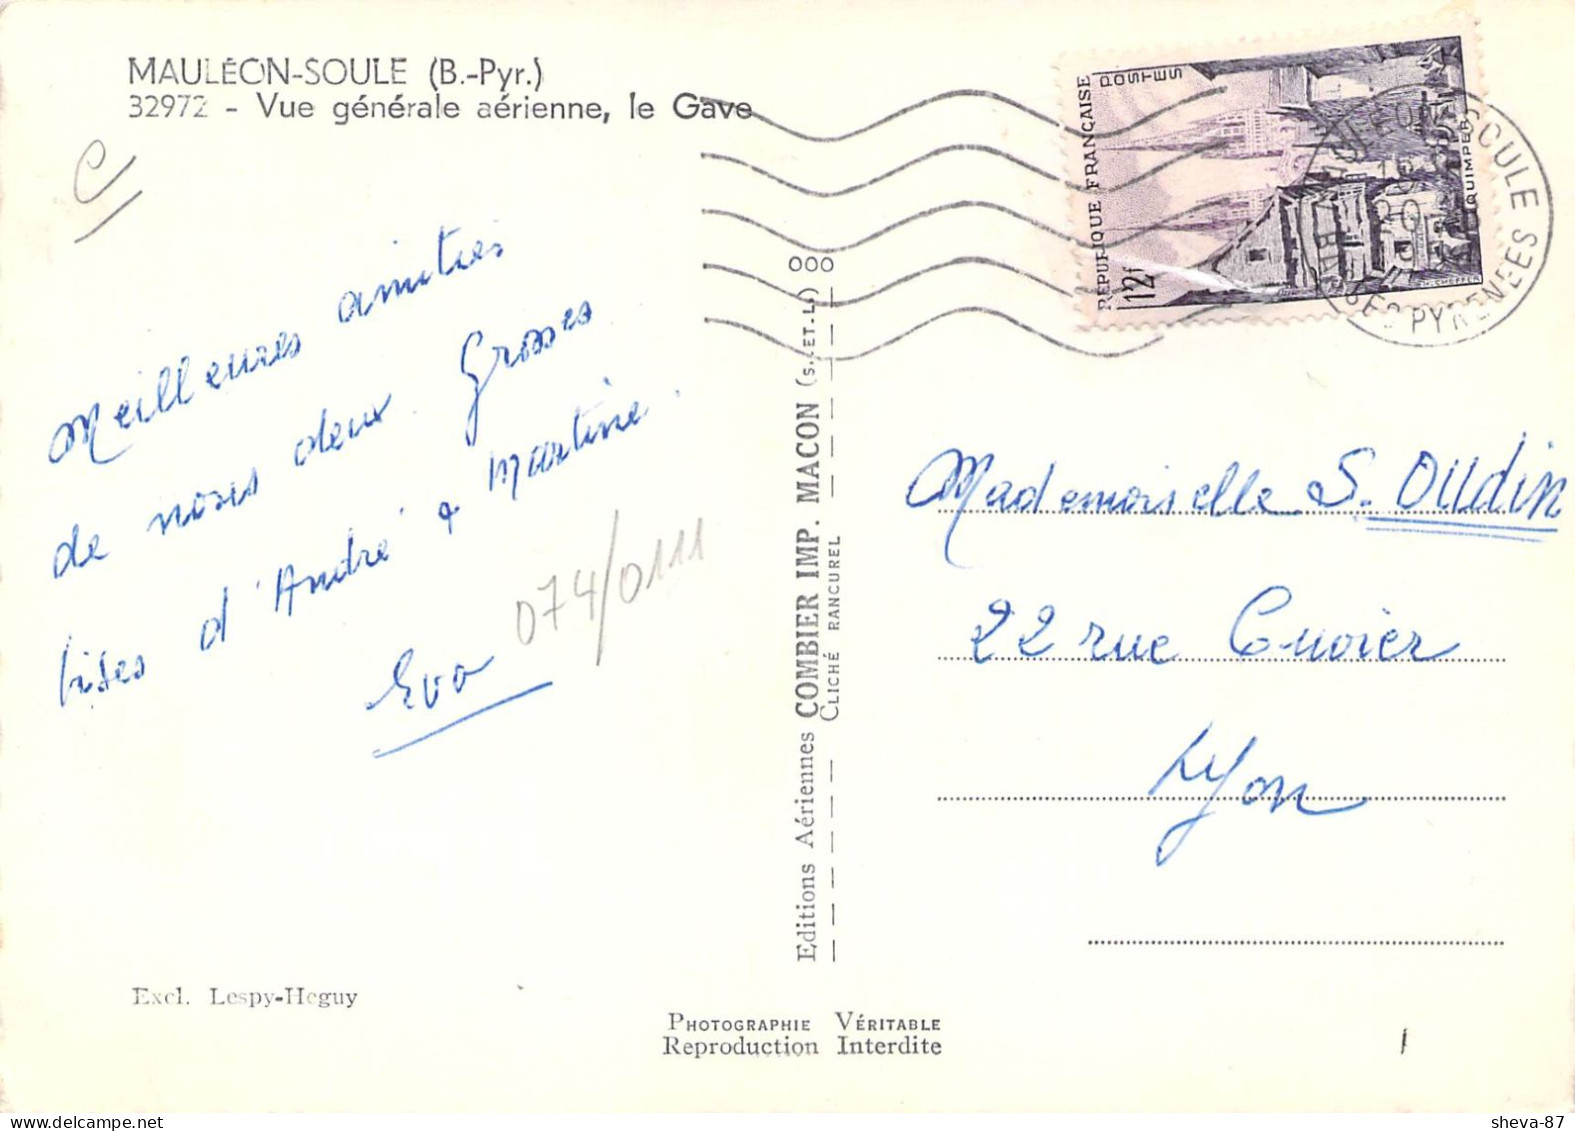 MAULÉON-SOULE (B.-Pyr.)
32972 - Vue générale aérienne, le Gave
Meilleures amitiés
de nous deux. Grosses
bises d'André & Martine.
Eva
074/0111
Excl. Lespy-Heguy
Editions Aériennes COMBIER IMP. MACON (S.-ET-L.) OOO
CLICHÉ RANCUREL
PHOTOGRAPHIE VÉRITABLE
Reproduction Interdite
RÉPUBLIQUE FRANÇAISE
POSTES
12f
QUIMPER
MAULEON SOULE
BASSES PYRENEES
Mademoiselle S. OUdin
22 rue Cuvier
Lyon
sheva-87